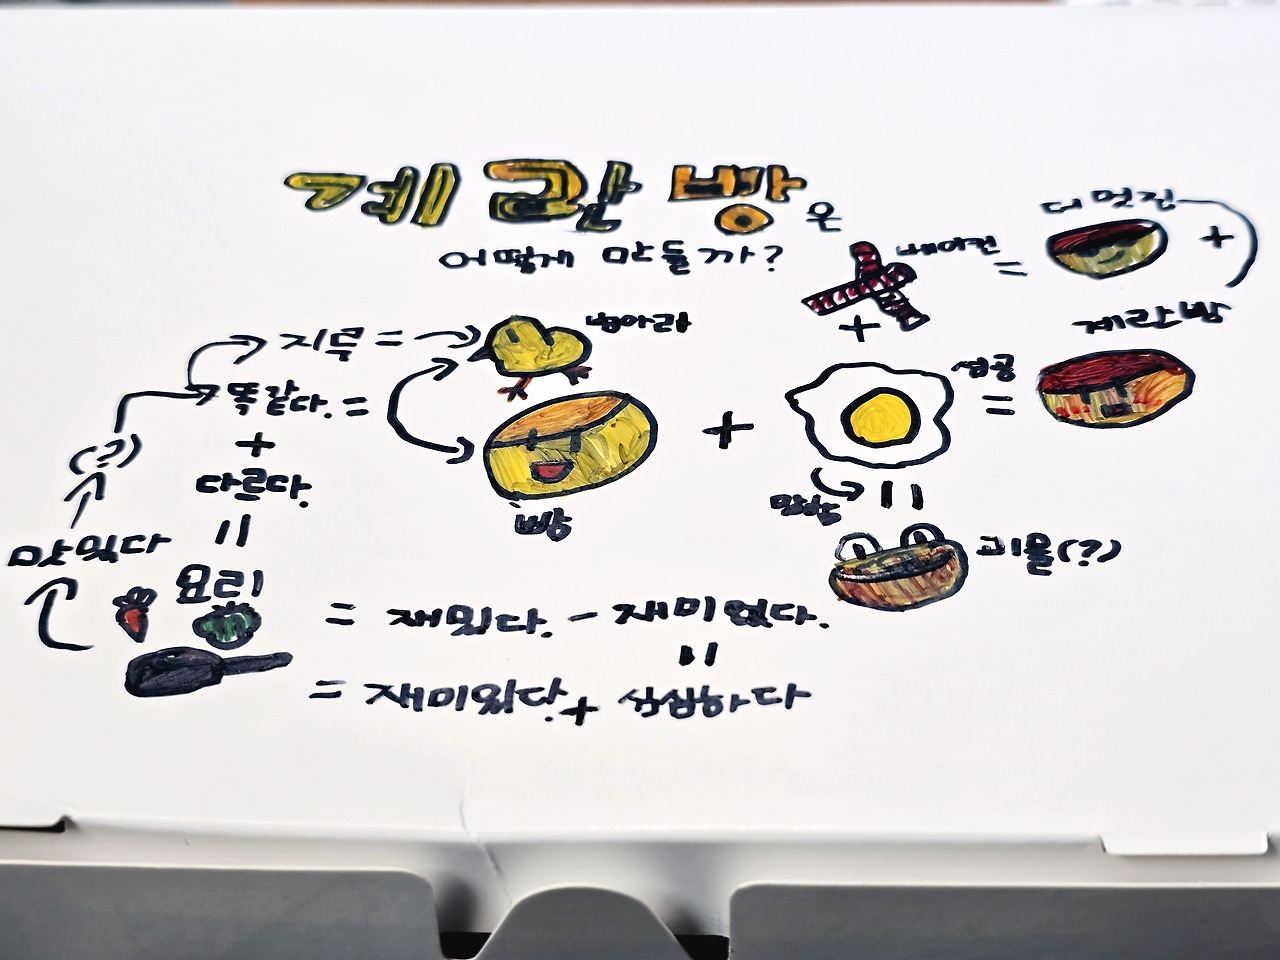 계란빵은
어떻게 만들까?
베이컨
=
더 멋진
+
계란빵
+
지루 =
병아리
똑같다. =
+
성공
=
(?)
+
다르다.
=
빵
맛있다
요리
괴물(?)
= 재밌다. - 재미없다.
=
= 재미있다. + 심심하다